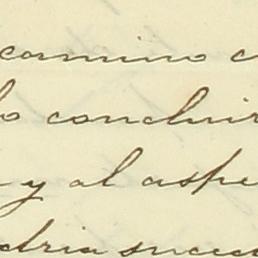 camino c
lo concluir
y al aspe
dria suce